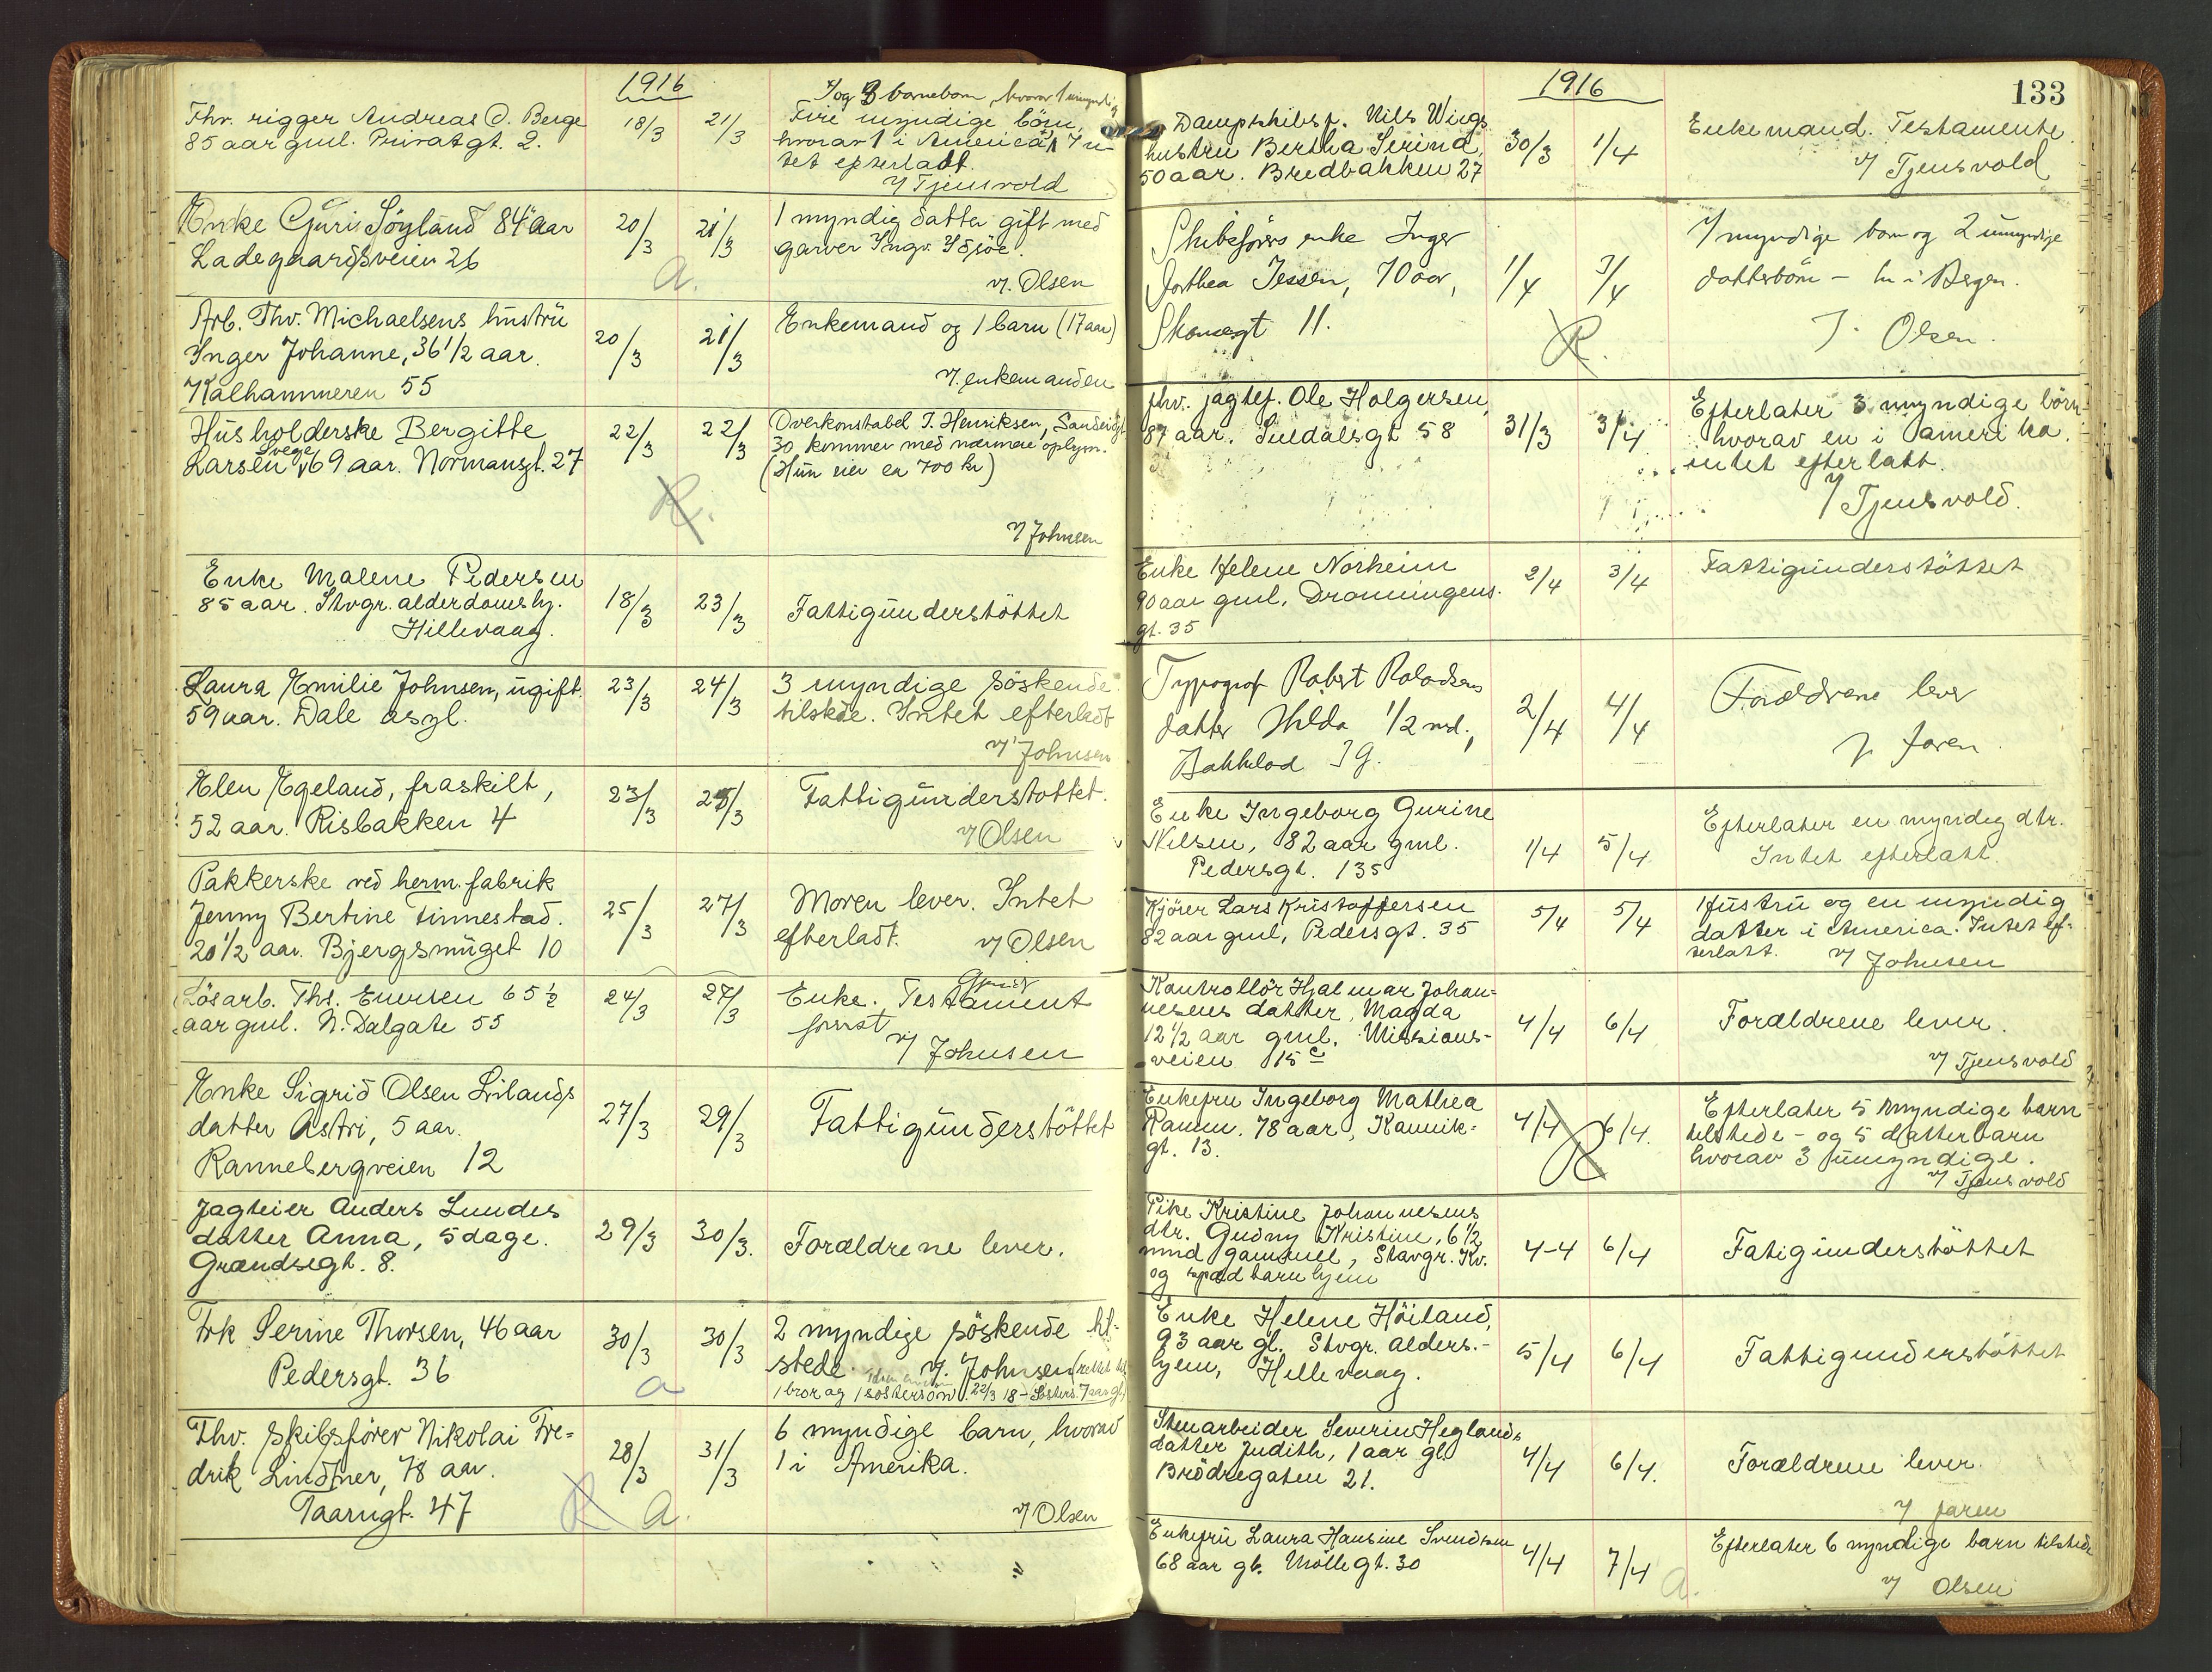 1916
Fhv. rigger Andreas O. Berge
85 aar gml. Privatgt. 2.
18/3
21/3
og 3 barnebarn, hvorav 1 umyndig
Fire myndige börn,
hvorav 1 i America, In-
tet efterladt.
v/ Tjensvold
Enke Guri Söyland 84 aar
Ladegaardsveien 26
20/3
21/3
a.
1 myndig datter gift med
garver Ingv. Idsöe.
v. Olsen
Arb. Thv. Michaelsens hustrü
Inger Johanne, 36 1/2 aar.
Kalhammeren 55
20/3
21/3
Enkemand og 1 barn (17 aar)
v. enkemanden
Husholderske Bergitte
vege
Larsen 69 aar. Normansgt. 27
22/3
22/3
R.
Overkonstabel T. Henriksen, Sandvigt.
30 kommer med nærmere oplysn.
(Hun eier ca 700 kr)
v/ Johnsen
Enke Malene Pedersen
85 aar. Stvgr. alderdomshj.
Hillevaag.
18/3
23/3
Fattigünderstöttet
Laura Emilie Johnsen, ugift.
59 aar. Dale asyl.
23/3
24/3
3 myndige söskende
tilstede. Intet efterladt
v/ Johnsen
Elen Egeland, fraskilt,
52 aar. Risbakken 4
23/3
25/3
Fattigünderstottet.
v/ Olsen
Pakkerske ved herm. fabrik
Jenny Bertine Finnestad.
20 1/2 aar. Bjergsmüget 10
25/3
27/3
Moren lever. Intet
efterladt. v/ Olsen
Lösarb. Ths. Enersen 65 1/2
aar gml. N. Dalgate 55
24/3
27/3
Enke. Testament
v/ Johnsen
Enke Sigrid Olsen Lilands
datter Astri, 5 aar.
Rannebergveien 12
27/3
29/3
Fattigünderstöttet
Jagteier Anders Lundes
datter Anna, 5 dage.
Grændsegt. 8.
29/3
30/3.
Forældrene lever.
Frk Serine Thorsen, 46 aar
Pedersgt. 36
30/3
30/3
a
2 myndige söskende til-
stede. v. Johnsen (rettet til
1 bror og 1 söstersön 22/3 18 – Sösters. 7 aar gl.)
Fhv. skibsförer Nikolai Fre-
drik Lindtner, 78 aar.
Taarngt. 47
28/3
31/3
R a.
6 myndige barn, hvorav
1 i Amerika.
v/ Olsen
1916
133
Dampskibsf. Nils Wiigs
hustru Bertha Serina
50 aar. Bredbakken 27
30/3
1/4
Enkemand. Testamente.
v/ Tjensvold
Skibsförers enke Inger
Dorthea Jessen, 70 aar,
Skansegt 11.
1/4
3/4
R.
7 myndige barn og 2 umyndige
datterbörn – bor i Bergen.
v. Olsen.
fhv. jagtef. Ole Holgersen,
87 aar. Suldalsgt 58
31/3
3/4
Efterlater 3 myndige börn
hvorav en i amerika.
intet efterlatt.
v/ Tjensvold.
Enke Helene Norheim
90 aar gml, Dronningens.
gt. 35
2/4
3/4
Fattigünderstöttet
Typograf Robert Roaldsens
datter Hilda 1/2 md.,
Bakkelad 39.
2/4
4/4
Forældrene lever
v/ faren
Enke Ingeborg Gurine
Nilsen, 82 aar gml.
Pedersgt. 135
1/4
5/4
Efterlater en myndig dtr.
Intet efterlatt.
Kjörer Lars Kristoffersen
82 aar gml, Pedersgt. 35
5/4
5/4
Hüstrü og en myndig
datter i America. Intet ef-
terlatt. v/ Johnsen
Kontrollör Hjalmar Johan-
nesens datter, Magda
12 1/2 aar gml. Missions-
veien 15 c
4/4
6/4
Forældrene lever.
v/ Tjensvold
Enkefru Ingeborg Mathea
Ramm. 78 aar, Kannik-
gt. 13.
4/4
6/4.
R
Efterlater 5 myndige barn
tilstede – og 5 datterbarn
hvorav 3 umyndige.
v/ Tjensvold
Pike Kristine Johannesens
dtr. Gudny Kristine, 6 1/2
mnd gammel, Stavgr. Kv.
og spædbarnhjem
4-4
6/4
Fatigünderstöttet
Enke Helene Höiland,
93 aar gl. Stvgr. alders.-
hjem, Hillevaag.
5/4
6/4
Fattigunderstöttet
Stenarbeider Severin Heglands
datter Judith, 1 aar gl.
Brödregaten 21.
4/4
6/4.
Forældrene lever.
v/ faren
Enkefrü Laura Hansine Svendsen
68 aar gl. Möllegt. 30
4/4
7/4
a.
Efterlater 6 myndige barn tilstede
v/ Olsen